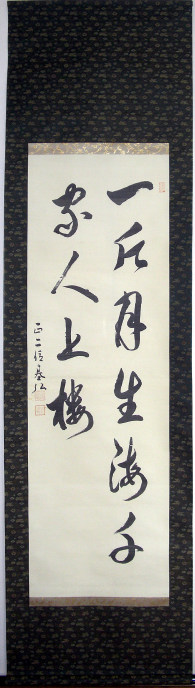 一片月生海千
家人上樓
正二位基弘